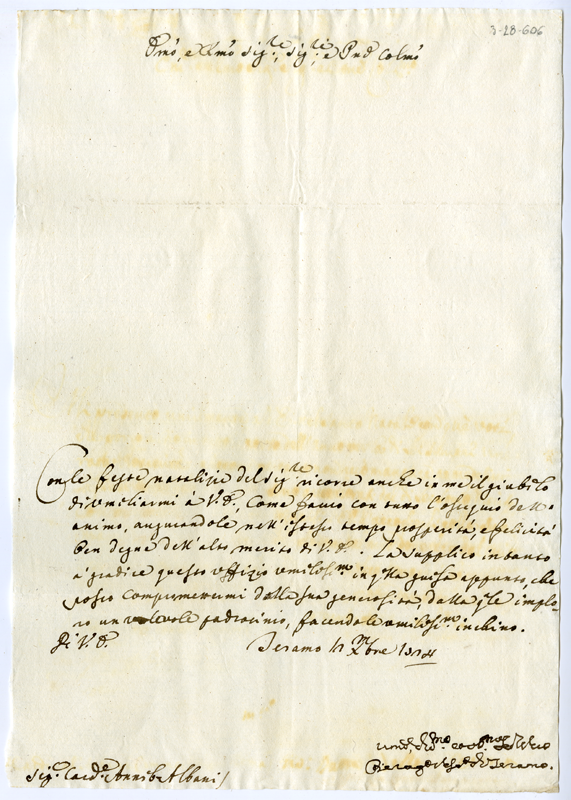 3-28-606
Emo, e Rmo Sigre, Sigre, e Pne Colmo
Con le feste natalizie del Sigre ricorre anche in me il giubilo
di umiliarmi à V.E. Come faccio con tutto l'ossequio dell'
animo, augurandole nell'istesso tempo prosperità, e felicità
ben degne dell'alto merito di V.E. La supplico intanto
a gradire questo uffizio umilissmo in qlla guisa appunto, che
posso compromettermi dalla sua generosità, dalla qle implo-
ro un valevole padrocinio, facendole umilissma inchino.
Di V.E. Teramo Xmbre
Teramo.
Sigr Carde Annib. Albani